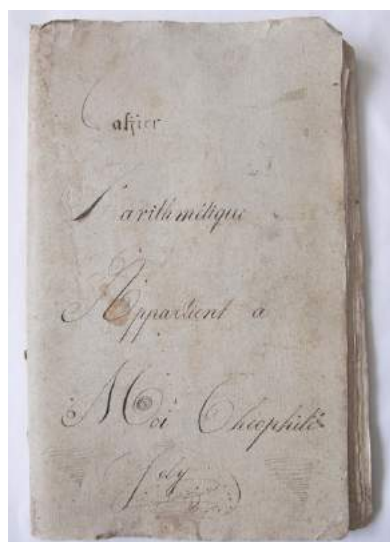 Cahier
D'arithmétique
Appartient a
Moi Théophile
Joly